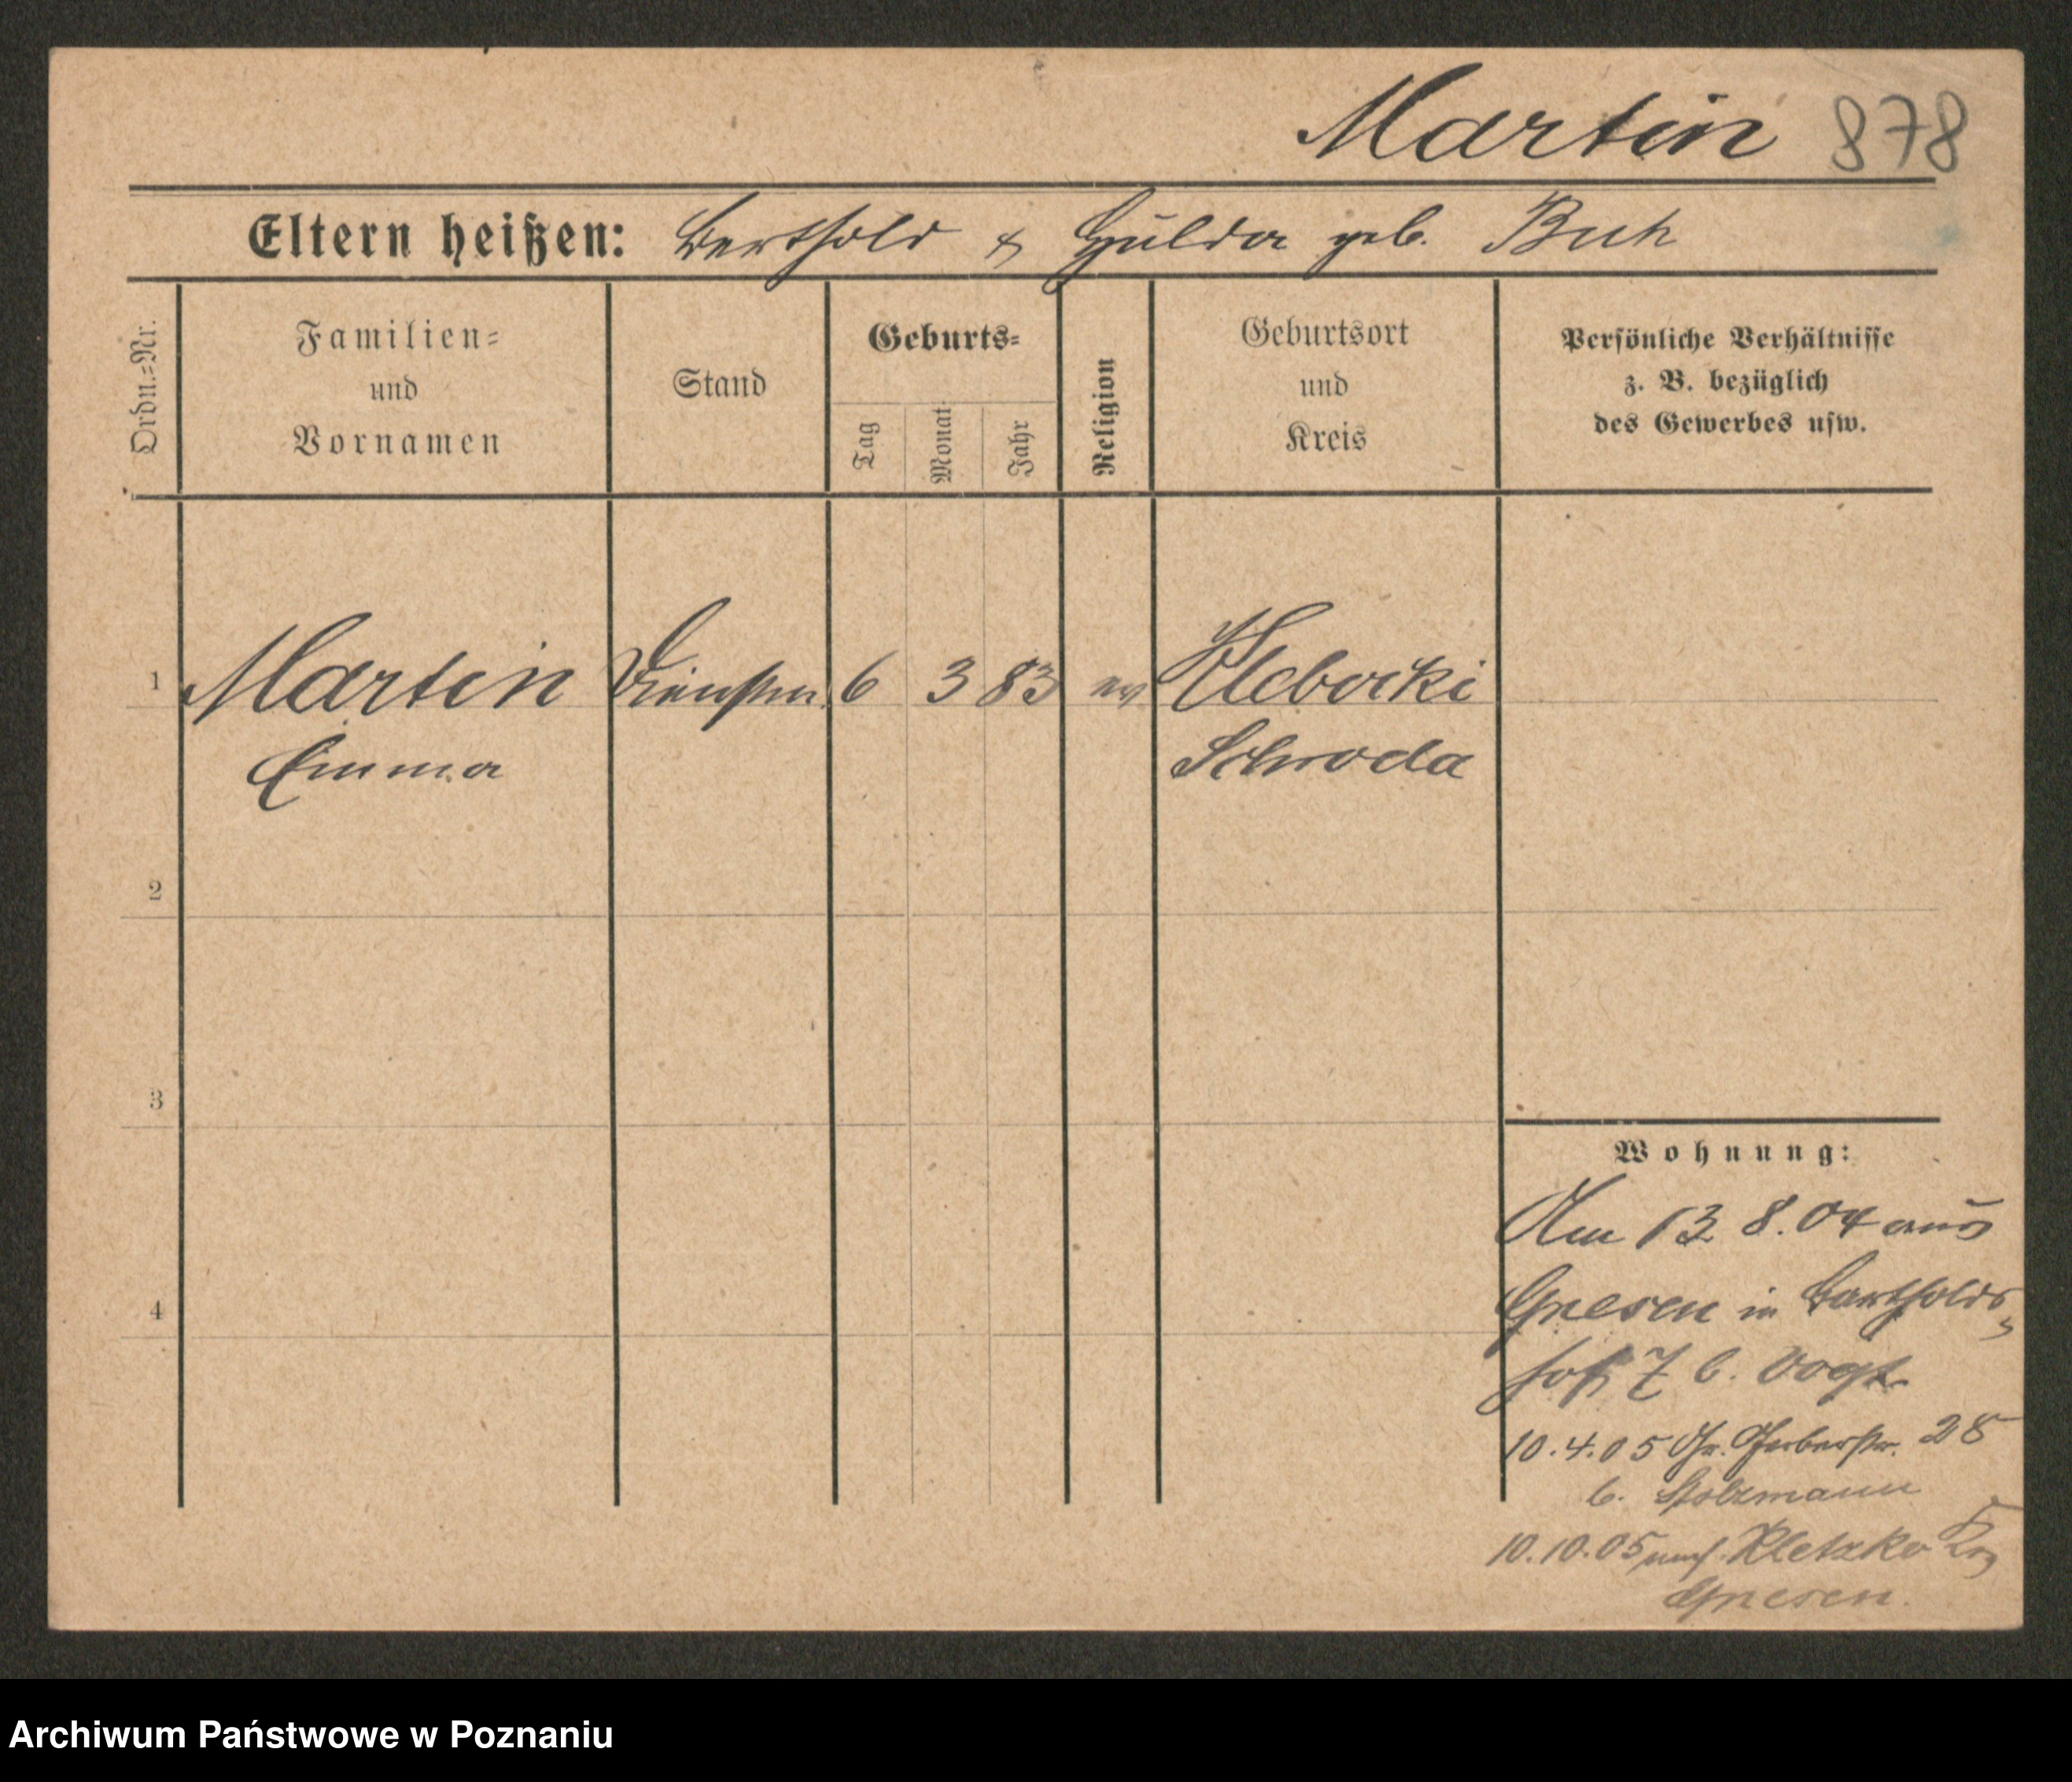 Martin 878
Eltern heißen: Berthold & Hulda geb. Buh
Ordn.=Nr.
Familien=
und
Vornamen
Stand
Geburts=
Tag
Monat
Jahr
Religion
Geburtsort
und
Kreis
Persönliche Verhältnisse
z. B. bezüglich
des Gewerbes usw.
1 Martin 6 3 83 ev
Emma Schroda
2
3
4
Wohnung:
Am 13 8. 04 aus
Gnesen in Bartholds
hof 7 b. Vogt
10.4.05 Gr. Gerberstr. 28
b. Stolzmann
10.10.05 nach Kletzko Krs
Gnesen.
Archiwum Państwowe w Poznaniu